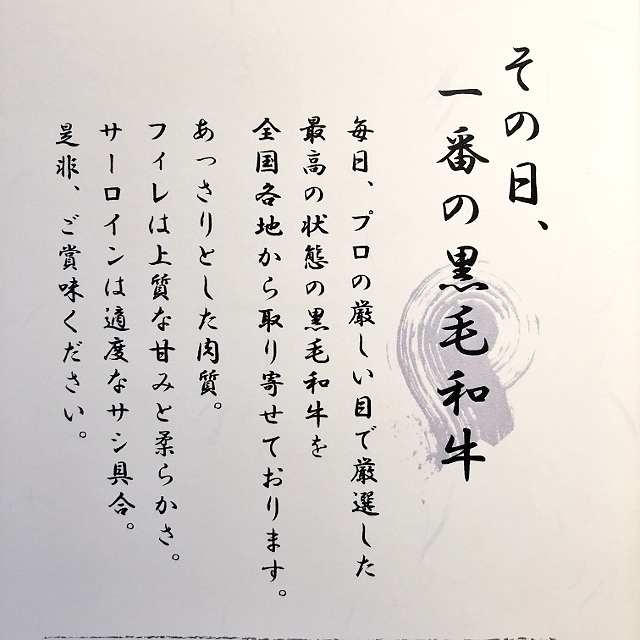 その日、
一番の黒毛和牛
毎日、プロの厳しい目で厳選した
最高の状態の黒毛和牛を
全国各地から取り寄せております。
あっさりとした肉質。
フィレは上質な甘みと柔らかさ。
サーロインは適度なサシ具合。
是非、ご賞味ください。